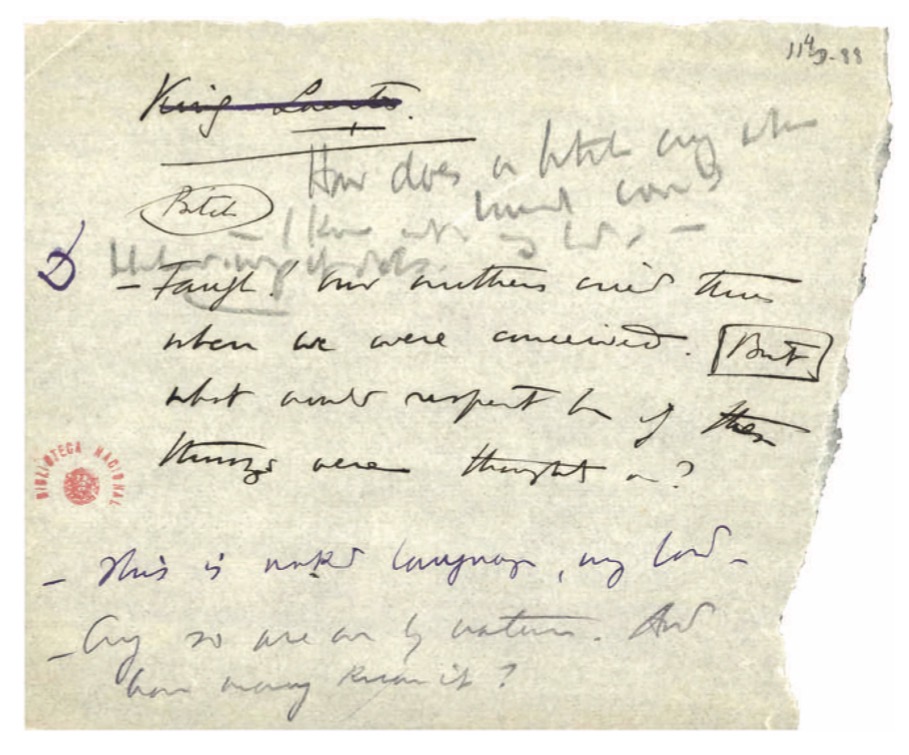 114D-88
King Laertes.
How does a bitch cry when
hound comes
Bitch
— I know not, my lord, —
D
— Faugh! our mothers cried thus
when we were conceived. But
what would respect be if these
things were thought on?
BIBLIOTECA NACIONAL
— This is naked language, my lord —
— Ay so are we by nature. And
how many know it?